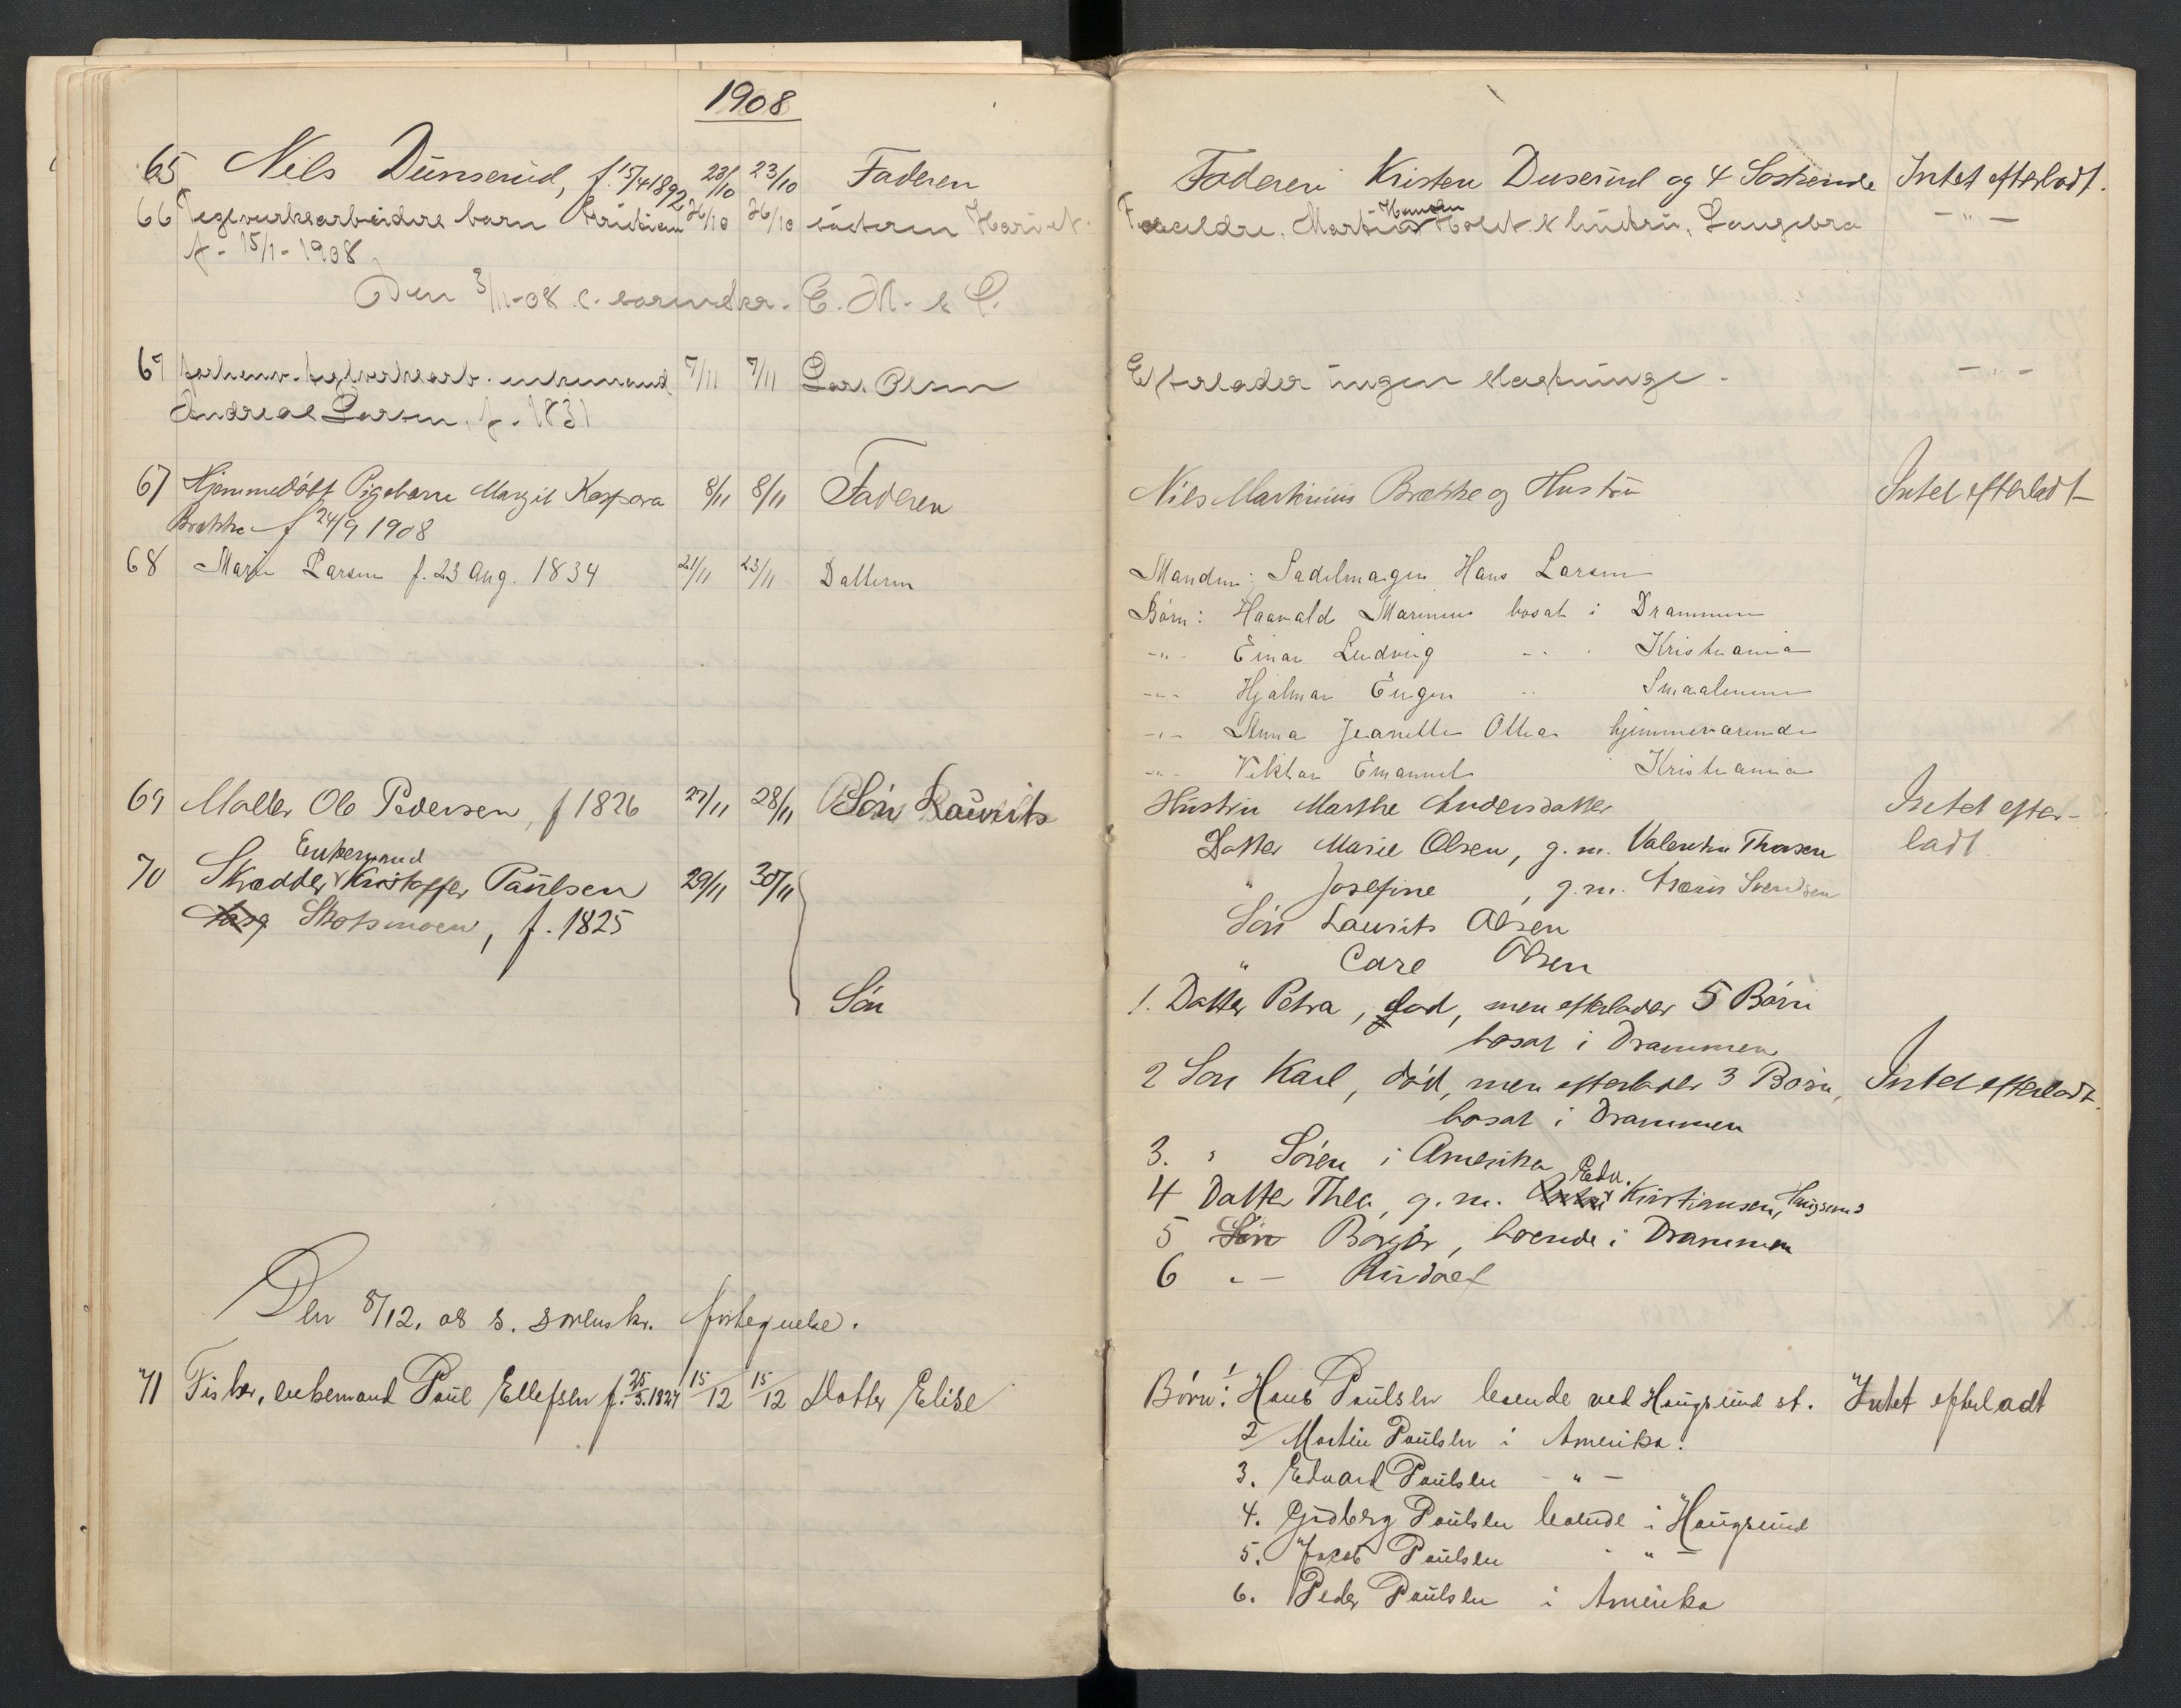 1908
65 Nils Dunserud, f. 15/4 1892 23/10 23/10 Faderen
66 Teglverksarbeiders barn Kristian 26/10 26/10 søsteren Hariet
f. 15/1 - 1908
Den 3/11-08 s. sorenskr. E. M. & L.
67 forhenv. teglverksarb. enkemand 7/11 7/11 Lars Olsen
Andreas Larsen, f. 1831
67 Hjemmedøbt Pigebarn Margit Kaspara 8/11 8/11 Faderen
Brække f 24/9 1908
68 Marie Larsen f. 23 Aug. 1834 21/11 23/11 Datteren
69 Møller Ole Pedersen, f 1826 27/11 28/11 Søn Laurits
Enkemand
70 Skrædder Kristoffer Paulsen 29/11 30/11
Skotsmoen, f. 1825
Søn
Den 8/12. 08 s. sorenskr. fortegnelse.
71 Fisker, enkemand Paul Ellefsen f. 25/3.1827 15/12 15/12 Datter Elise
Faderen Kristen Duserud og 4 Søskende Intet efterladt.
Hansen
Forældre, Martin Holst & hustru, Langebra - " -
Efterlader ingen slægtninge. - " -
Nils Martinius Brække og Hustru Intet efterladt
Manden: Sadelmager Hans Larsen
Børn: Haavald Marinius bosat i Drammen
- " - Einar Ludvig - " - Kristiania
- " - Hjalmar Eugen " Smaalenene
- " - Anna Jeanette Othea hjemmeværende
- " - Viktor Emanuel Kristiania
Hustru Marthe Andersdatter Intet efter-
Datter Marie Olsen, g. m. Valentin Thorsen ladt
" Josefine , g. m. Svendsen
Søn Laurits Olsen
" Carl Olsen
1. Datter Petra, død, men efterlader 5 Børn
bosat i Drammen
2 Søn Karl, død, men efterlader 3 Børn, Intet efterladt.
bosat i Drammen
3. " Søren i Amerika
Edv.
4 Datter Thea, g. m. Kristiansen, Haugsund
5 Søn Borger, boende i Drammen
6 " - Rudolf
Børn: 1 Hans Paulsen boende ved Haugsund st. Intet efterladt
2 Martin Paulsen i Amerika.
3. Edvard Paulsen - " -
4. Gudberg Paulsen boende i Haugsund
5. Jacob Paulsen - " -
6. Peder Paulsen i Amerika